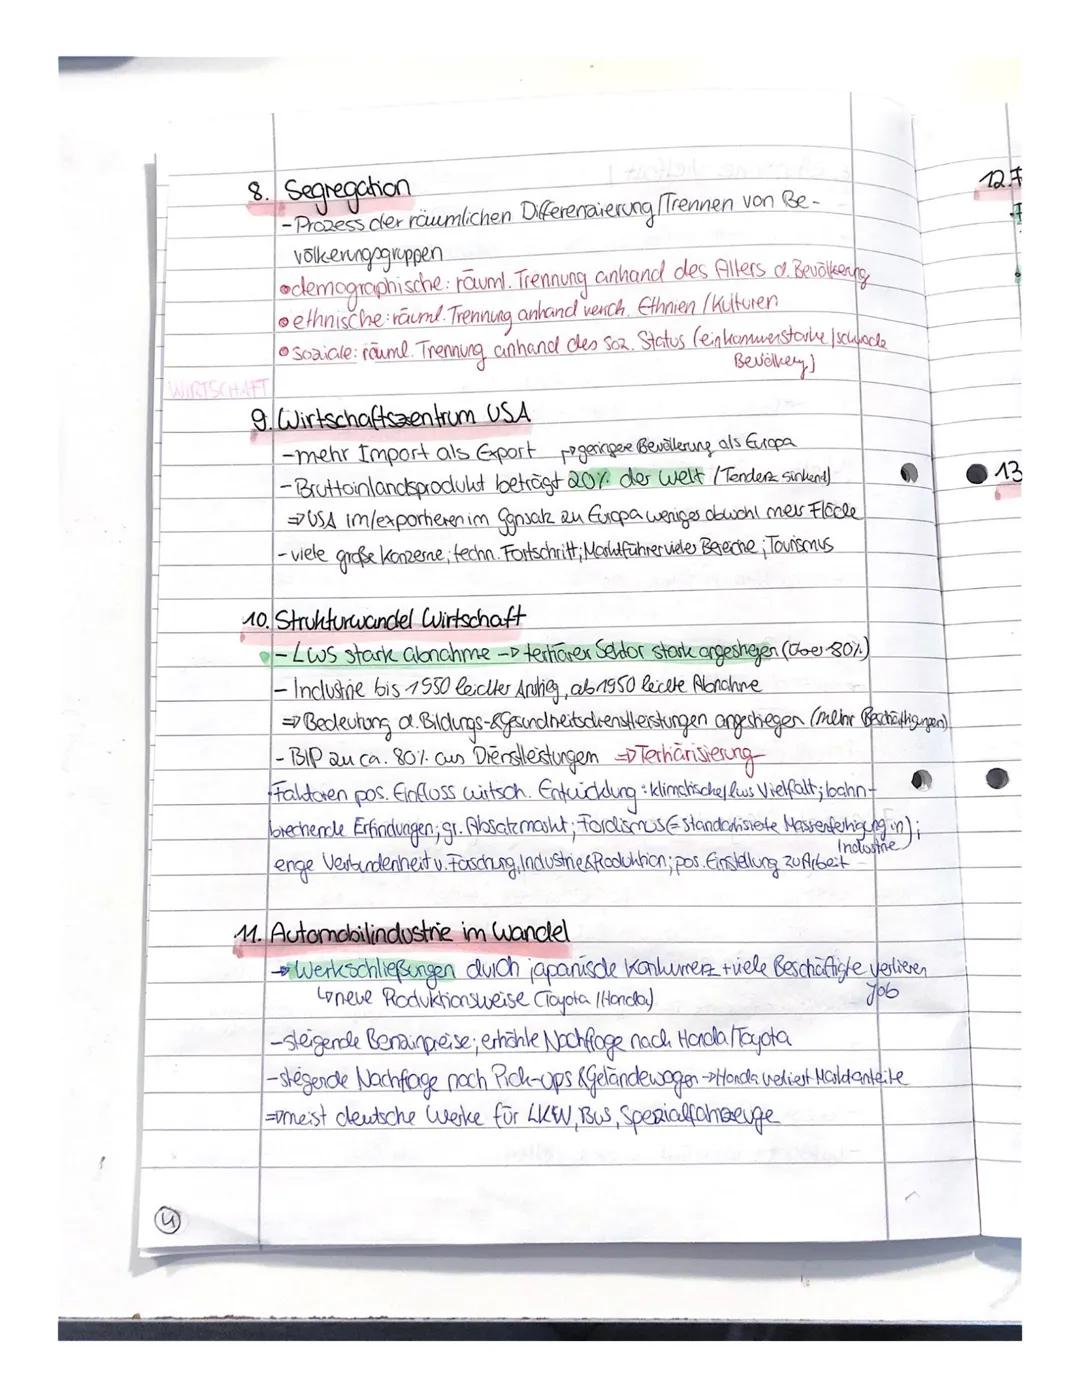 8. Segregation
- Prozess der räumlichen Differenzierung/Trennen von Be-
völkerungsgruppen
• demographische: räuml. Trennung anhand des Alters d. Bevölkerung
• ethnische: räuml. Trennung anhand versch. Ethnien / Kulturen
• soziale: räuml. Trennung anhand des soz. Status (einkommerstarke / schwache
Bevölkerg)
WIRTSCHAFT
9. Wirtschaftszentrum USA
- mehr Import als Export ↱ geringere Bevölkerung als Europa
- Bruttoinlandsprodukt beträgt 20% der Welt (Tendenz sinkend)
⇒ USA im/exportieren im Ggnsatz zu Europa weniger obwohl mehr Fläche
- viele große Konzerne; techn. Fortschritt; Marktführer vieler Bereiche; Tourismus
10. Strukturwandel Wirtschaft
- LWS stark abnahme → tertiärer Sektor stark angestiegen (über 80%)
- Industrie bis 1950 leichter Anstieg, ab 1950 leichte Abnahme
⇒ Bedeutung d. Bildungs- & Gesundheitsdienstleistungen angestiegen (mehr Beschäftigungen)
- BIP zu ca. 80% aus Dienstleistungen ⇒ Tertiärisierung
Faktoren pos. Einfluss wirtsch. Entwicklung: klimatische/lws Vielfalt; bahn-
brechende Erfindungen; gr. Absatzmarkt; Fordismus (= standardisierte Massenfertigung in);
Industrie)
enge Verbundenheit v. Forschung, Industrie & Produktion; pos. Einstellung zu Arbeit
11. Automobilindustrie im Wandel
→ Werkschließungen durch japanische Konkurrenz + viele Beschäftigte verlieren
Job
↳ neue Produktionsweise (Toyota / Honda)
- steigende Benzinpreise; erhöhte Nachfrage nach Honda/Toyota
- steigende Nachfrage nach Pick-ups & Geländewagen → Honda verliert Marktanteile
⇒ meist deutsche Werke für LKW, Bus, Spezialfahrzeuge
4
12.
13